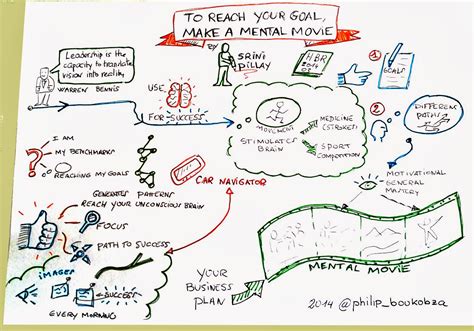 TO REACH YOUR GOAL,
MAKE A MENTAL MOVIE
Leadership is the
capacity to translate
vision into reality
WARREN BENNIS
USE
FOR SUCCESS
SRINI
PILLAY
HBR
2014
1
GOALS
MOVEMENT
STIMULATES
BRAIN
MEDICINE
(STROKE)
SPORT
COMPETITION
2
DIFFERENT
PATHS
I AM
MY BENCHMARKS
REACHING MY GOALS
CAR NAVIGATOR
GENERATES PATTERNS
REACH YOUR UNCONSCIOUS BRAIN
FOCUS
PATH TO SUCCESS
IMAGES
SUCCESS
EVERY MORNING
MOTIVATIONAL
GENERAL
MASTERY
YOUR
BUSINESS
PLAN
MENTAL MOVIE
2014 @philip_boukobza